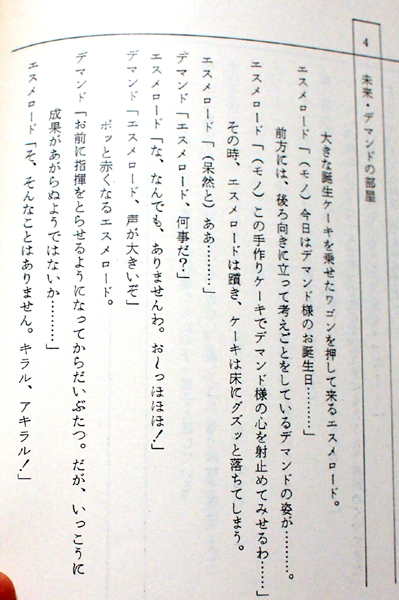 4
未来・デマンドの部屋
大きな誕生ケーキを乗せたワゴンを押して来るエスメロード。
エスメロード「（モノ）今日はデマンド様のお誕生日………」
前方には、後ろ向きに立って考えごとをしているデマンドの姿が………。
エスメロード「（モノ）この手作りケーキでデマンド様の心を射止めてみせるわ……」
その時、エスメロードは躓き、ケーキは床にグズッと落ちてしまう。
エスメロード「（呆然と）ああ………」
デマンド「エスメロード、何事だ？」
エスメロード「な、なんでも、ありませんわ。お〜っほほほ！」
デマンド「エスメロード、声が大きいぞ」
ポッと赤くなるエスメロード。
デマンド「お前に指揮をとらせるようになってからだいぶたつ。だが、いっこうに
成果があがらぬようではないか………」
エスメロード「そ、そんなことはありません。キラル、アキラル！」